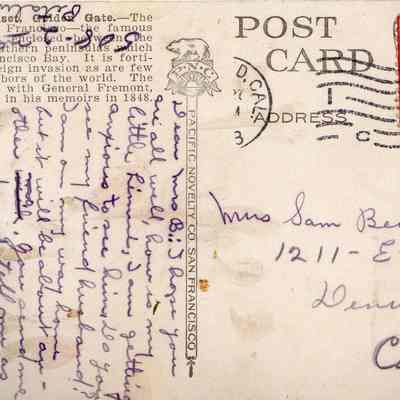 nset, Golden Gate.—The
Francisco—the famous
enclosed between the
thern peninsulas which
ncisco Bay. It is forti-
eign invasion as are few
bors of the world. The
with General Fremont,
in his memoirs in 1848.
POST
CARD
ADDRESS
P.N.C.
PACIFIC NOVELTY CO. SAN FRANCISCO
D, CAL
3
1
C
Dear Mrs B:: I hope you
are all well, how is my
little I am getting
anxious to see him. Do you
see my friend husband?
I am on my way home
but it will be about an-
other
Mrs Sam Be
1211 - E
Denv
Co